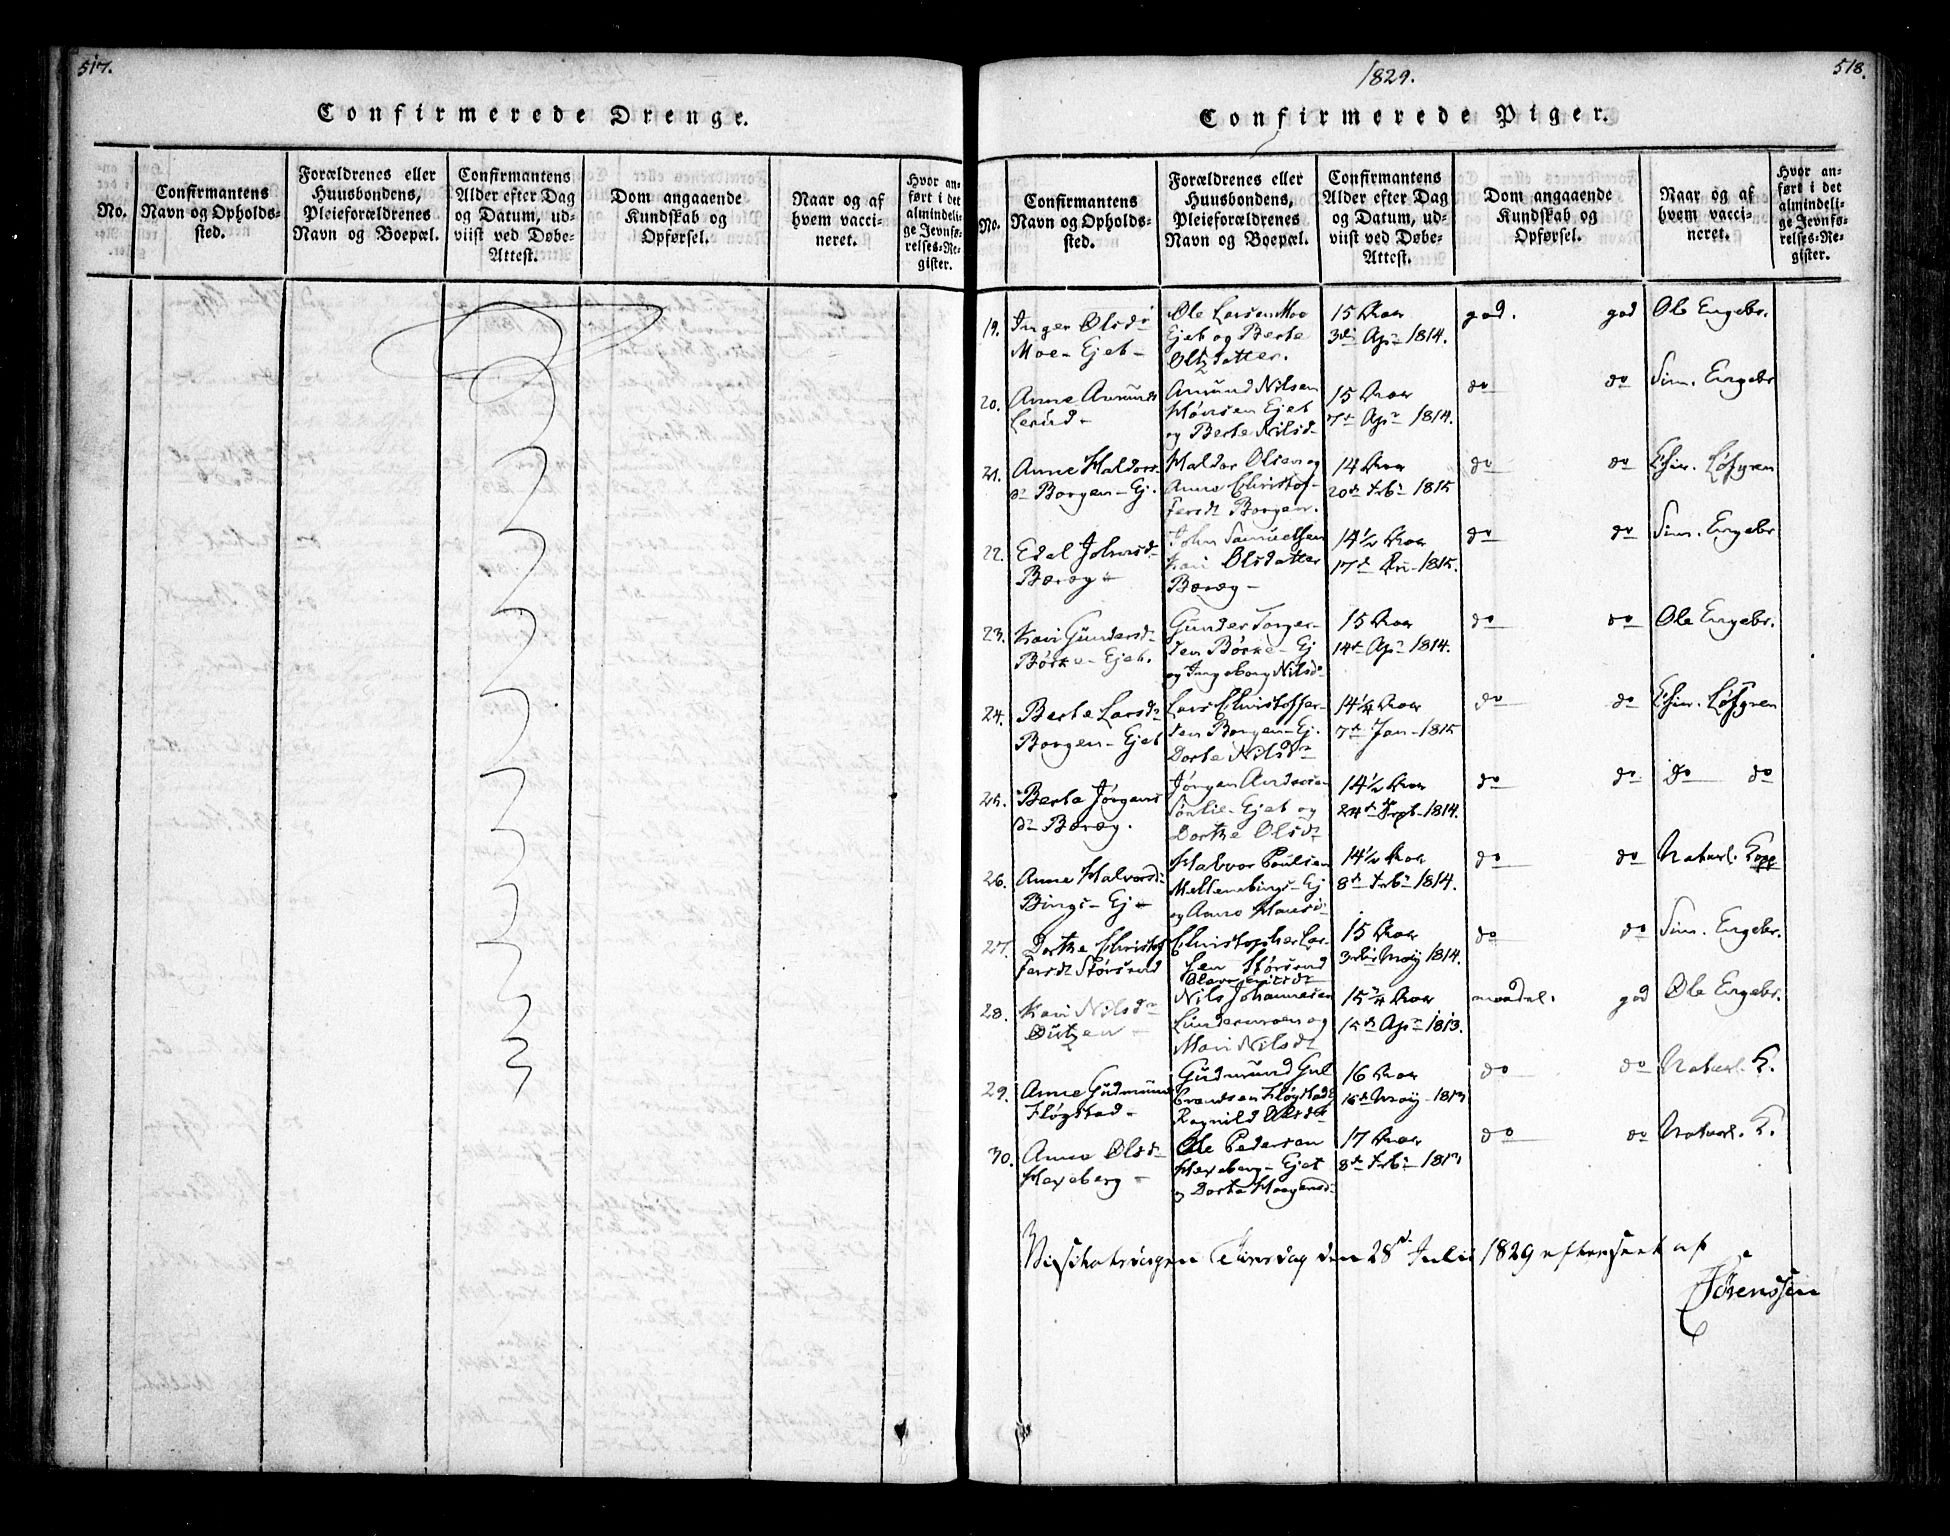 517.
Confirmerede Drenge.
No.
Confirmantens
Navn og Opholds-
sted.
Forældrenes eller
Huusbondens,
Pleieforældrenes
Navn og Boepæl.
Confirmantens
Alder efter Dag
og Datum, ud-
viist ved Døbe-
Attest.
Dom angaaende
Kundskab og
Opførsel.
Naar og af
hvem vacci-
neret.
Hvor an-
ført i det
almindeli-
ge Jevnfø-
relses-Re-
gister.
1829.
518.
Confirmerede Piger.
No.
Confirmantens
Navn og Opholds-
sted.
Forældrenes eller
Huusbondens,
Pleieforældrenes
Navn og Boepæl.
Confirmantens
Alder efter Dag
og Datum, ud-
viist ved Døbe-
Attest.
Dom angaaende
Kundskab og
Opførsel.
Naar og af
hvem vacci-
neret.
Hvor an-
ført i det
almindeli-
ge Jevnfø-
relses-Re-
gister.
19. Inger Olsd
Moe - Ejet -
Ole Larsen Moe
Ejet og Berte
Olsdatter.
15 Aar
3die Apr 1814.
god. god
Ole Engebr.
20. Anne Amunds
Lerud -
Amund Nilsen
Ejet
og Berte Nilsd
15 Aar
7de Apr 1814.
do do
Sim. Engebr
21. Anne Haldors
dr Borgen - Ej.
Haldor Olsen og
Anne Christof-
fersdt Borgen.
14 Aar
20de Feb 1815
do do
Chir. Løfgren
22. Edel Johnsd
Boræg
John Samuelsen
Kari Olsdatter
Boræg -
14½ Aar
17de 1815.
do do
Sim. Engebr
23. Kari Gundersd
Børke - Ejet.
Gunder Torger-
sen Børke - Ej
og Ingeborg Nilsd
15 Aar
14de Apr 1814.
do do
Ole Engebr.
24. Berte Larsd
Borgen - Ejet
Lars Christoffer-
sen Borgen - Ej.
Dorte Nilsd
14¼ Aar
7de Jan - 1815
do do
Chir. Løfgren
25. Berte Jørgens
d Boræg.
Jørgen Andersen
Sørlie - Ejet og
Dorthe Olsdt
14½ Aar
24de Sept - 1814.
do do
do do
26. Anne Halvorsd
Bings - Ej
Halvor Poulsen
Mellembings - Ej
og Anne Hansd
14½ Aar
8de Feb 1814.
do do
Naturl. Kopp
27. Dorthe Christof
fersdt Størsrud
Christopher Lar-
sen Størsrud
15 Aar
3die Maij 1814.
do do
Sim. Engebr.
28. Kari Nilsd
Nils Johannesen
Lundermoen og
Mari Nilsdt
15¾ Aar
15de Apr 1813.
maadel. god
Ole Engebr.
29. Anne Gudmunds
Fløgstad -
Gudmund Gul
brandsen Fløgstad
Ragnild Olsdt
16 Aar
16de Maij - 1813
do do
Naturl. K.
30. Anne Olsd
Hexeberg -
Ole Pedersen
Hexeberg - Ejet
og Dorte Haagensd
17 Aar
8de Feb 1813
do do
Naturl. K.
Tirsdag den 28de Julii 1829 efterseet af
Sørenssen